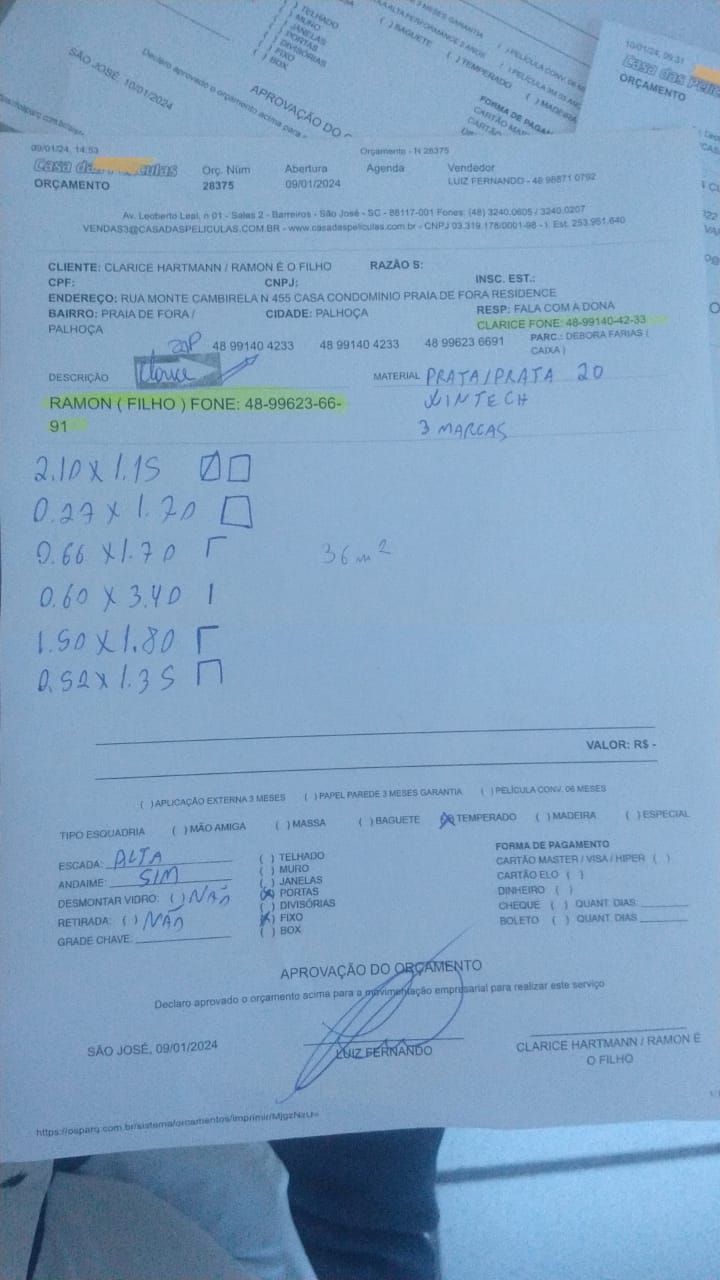 ( ) TELHADO
( ) MURO
( ) JANELAS
( ) PORTAS
( ) DIVISÓRIAS
( ) FIXO
( ) BOX
3 MESES GARANTIA
ALTA PERFORMANCE 3 ANOS
( ) BAGUETE
( ) TEMPERADO
( ) PELÍCULA CONV. 06
( ) PELÍCULA 3M 03 ANOS
( ) MADEIRA
SÃO JOSÉ, 10/01/2024
Declaro aprovado o orçamento acima para a
APROVAÇÃO DO
FORMA DE PAGAM
CARTÃO MAS
CARTÃO
10/01/24, 09:31
Casa das Pelí
ORÇAMENTO
09/01/24, 14:53
Orçamento - N 28375
Casa das Películas
Orç. Núm
Abertura
Agenda
Vendedor
ORÇAMENTO
28375
09/01/2024
LUIZ FERNANDO - 48 98871 0792
Av. Leoberto Leal, n 01 - Salas 2 - Barreiros - São José - SC - 88117-001 Fones: (48) 3240.0605 / 3240.0207
VENDAS3@CASADASPELICULAS.COM.BR - www.casadaspeliculas.com.br - CNPJ 03.319.178/0001-98 - I. Est. 253.951.640
CLIENTE: CLARICE HARTMANN / RAMON É O FILHO
RAZÃO S:
CPF:
CNPJ:
INSC. EST.:
ENDEREÇO: RUA MONTE CAMBIRELA N 455 CASA CONDOMINIO PRAIA DE FORA RESIDENCE
BAIRRO: PRAIA DE FORA / PALHOÇA
CIDADE: PALHOÇA
RESP: FALA COM A DONA CLARICE FONE: 48-99140-42-33
48 99140 4233
48 99140 4233
48 99623 6691
PARC.: DEBORA FARIAS ( CAIXA )
DESCRIÇÃO
Clarice
MATERIAL PRATA/PRATA 20
WINTECH
3 MARCAS
RAMON ( FILHO ) FONE: 48-99623-66-
91
2.10 X 1.15
0.27 X 1.70
0.66 X 1.70
36 m²
0.60 X 3.40
1.50 X 1.80
0.52 X 1.35
VALOR: R$ -
( ) APLICAÇÃO EXTERNA 3 MESES ( ) PAPEL PAREDE 3 MESES GARANTIA ( ) PELÍCULA CONV. 06 MESES
TIPO ESQUADRIA ( ) MÃO AMIGA ( ) MASSA ( ) BAGUETE (X) TEMPERADO ( ) MADEIRA ( ) ESPECIAL
ESCADA: ALTA
ANDAIME: SIM
DESMONTAR VIDRO: ( ) NÃO
RETIRADA: ( ) NÃO
GRADE CHAVE:
( ) TELHADO
( ) MURO
( ) JANELAS
(X) PORTAS
( ) DIVISÓRIAS
(X) FIXO
( ) BOX
FORMA DE PAGAMENTO
CARTÃO MASTER / VISA / HIPER ( )
CARTÃO ELO ( )
DINHEIRO ( )
CHEQUE ( ) QUANT. DIAS:
BOLETO ( ) QUANT. DIAS
APROVAÇÃO DO ORÇAMENTO
Declaro aprovado o orçamento acima para a movimentação empresarial para realizar este serviço
SÃO JOSÉ, 09/01/2024
LUIZ FERNANDO
CLARICE HARTMANN / RAMON É
O FILHO
https://osparq.com.br/sistema/orcamentos/imprimir/MjgzNzU=